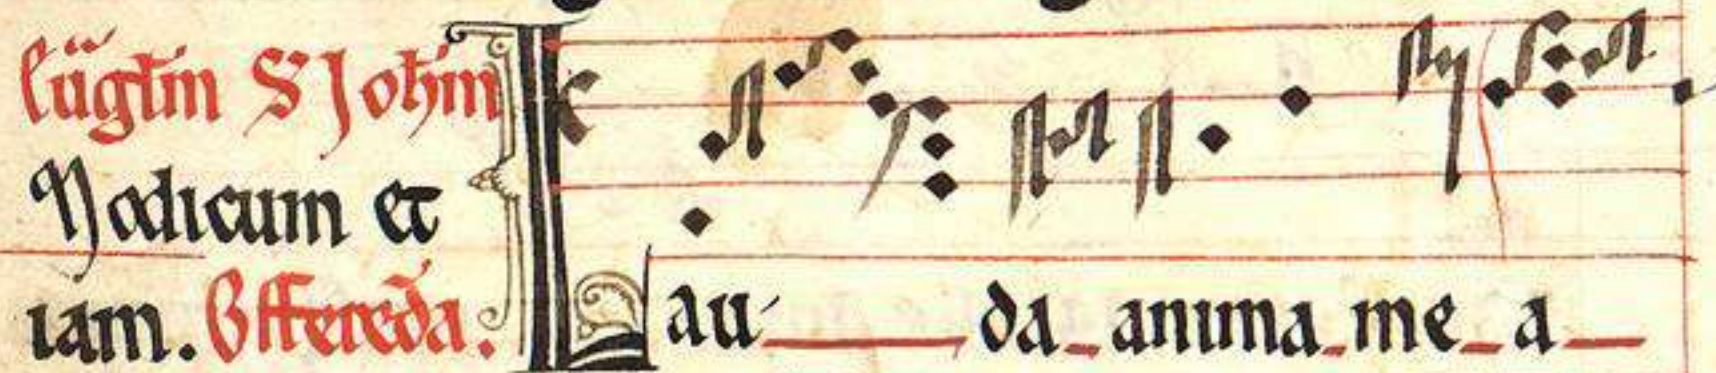 S Johm
Modicum et
iam. Offerēda.
Lauda anima mea